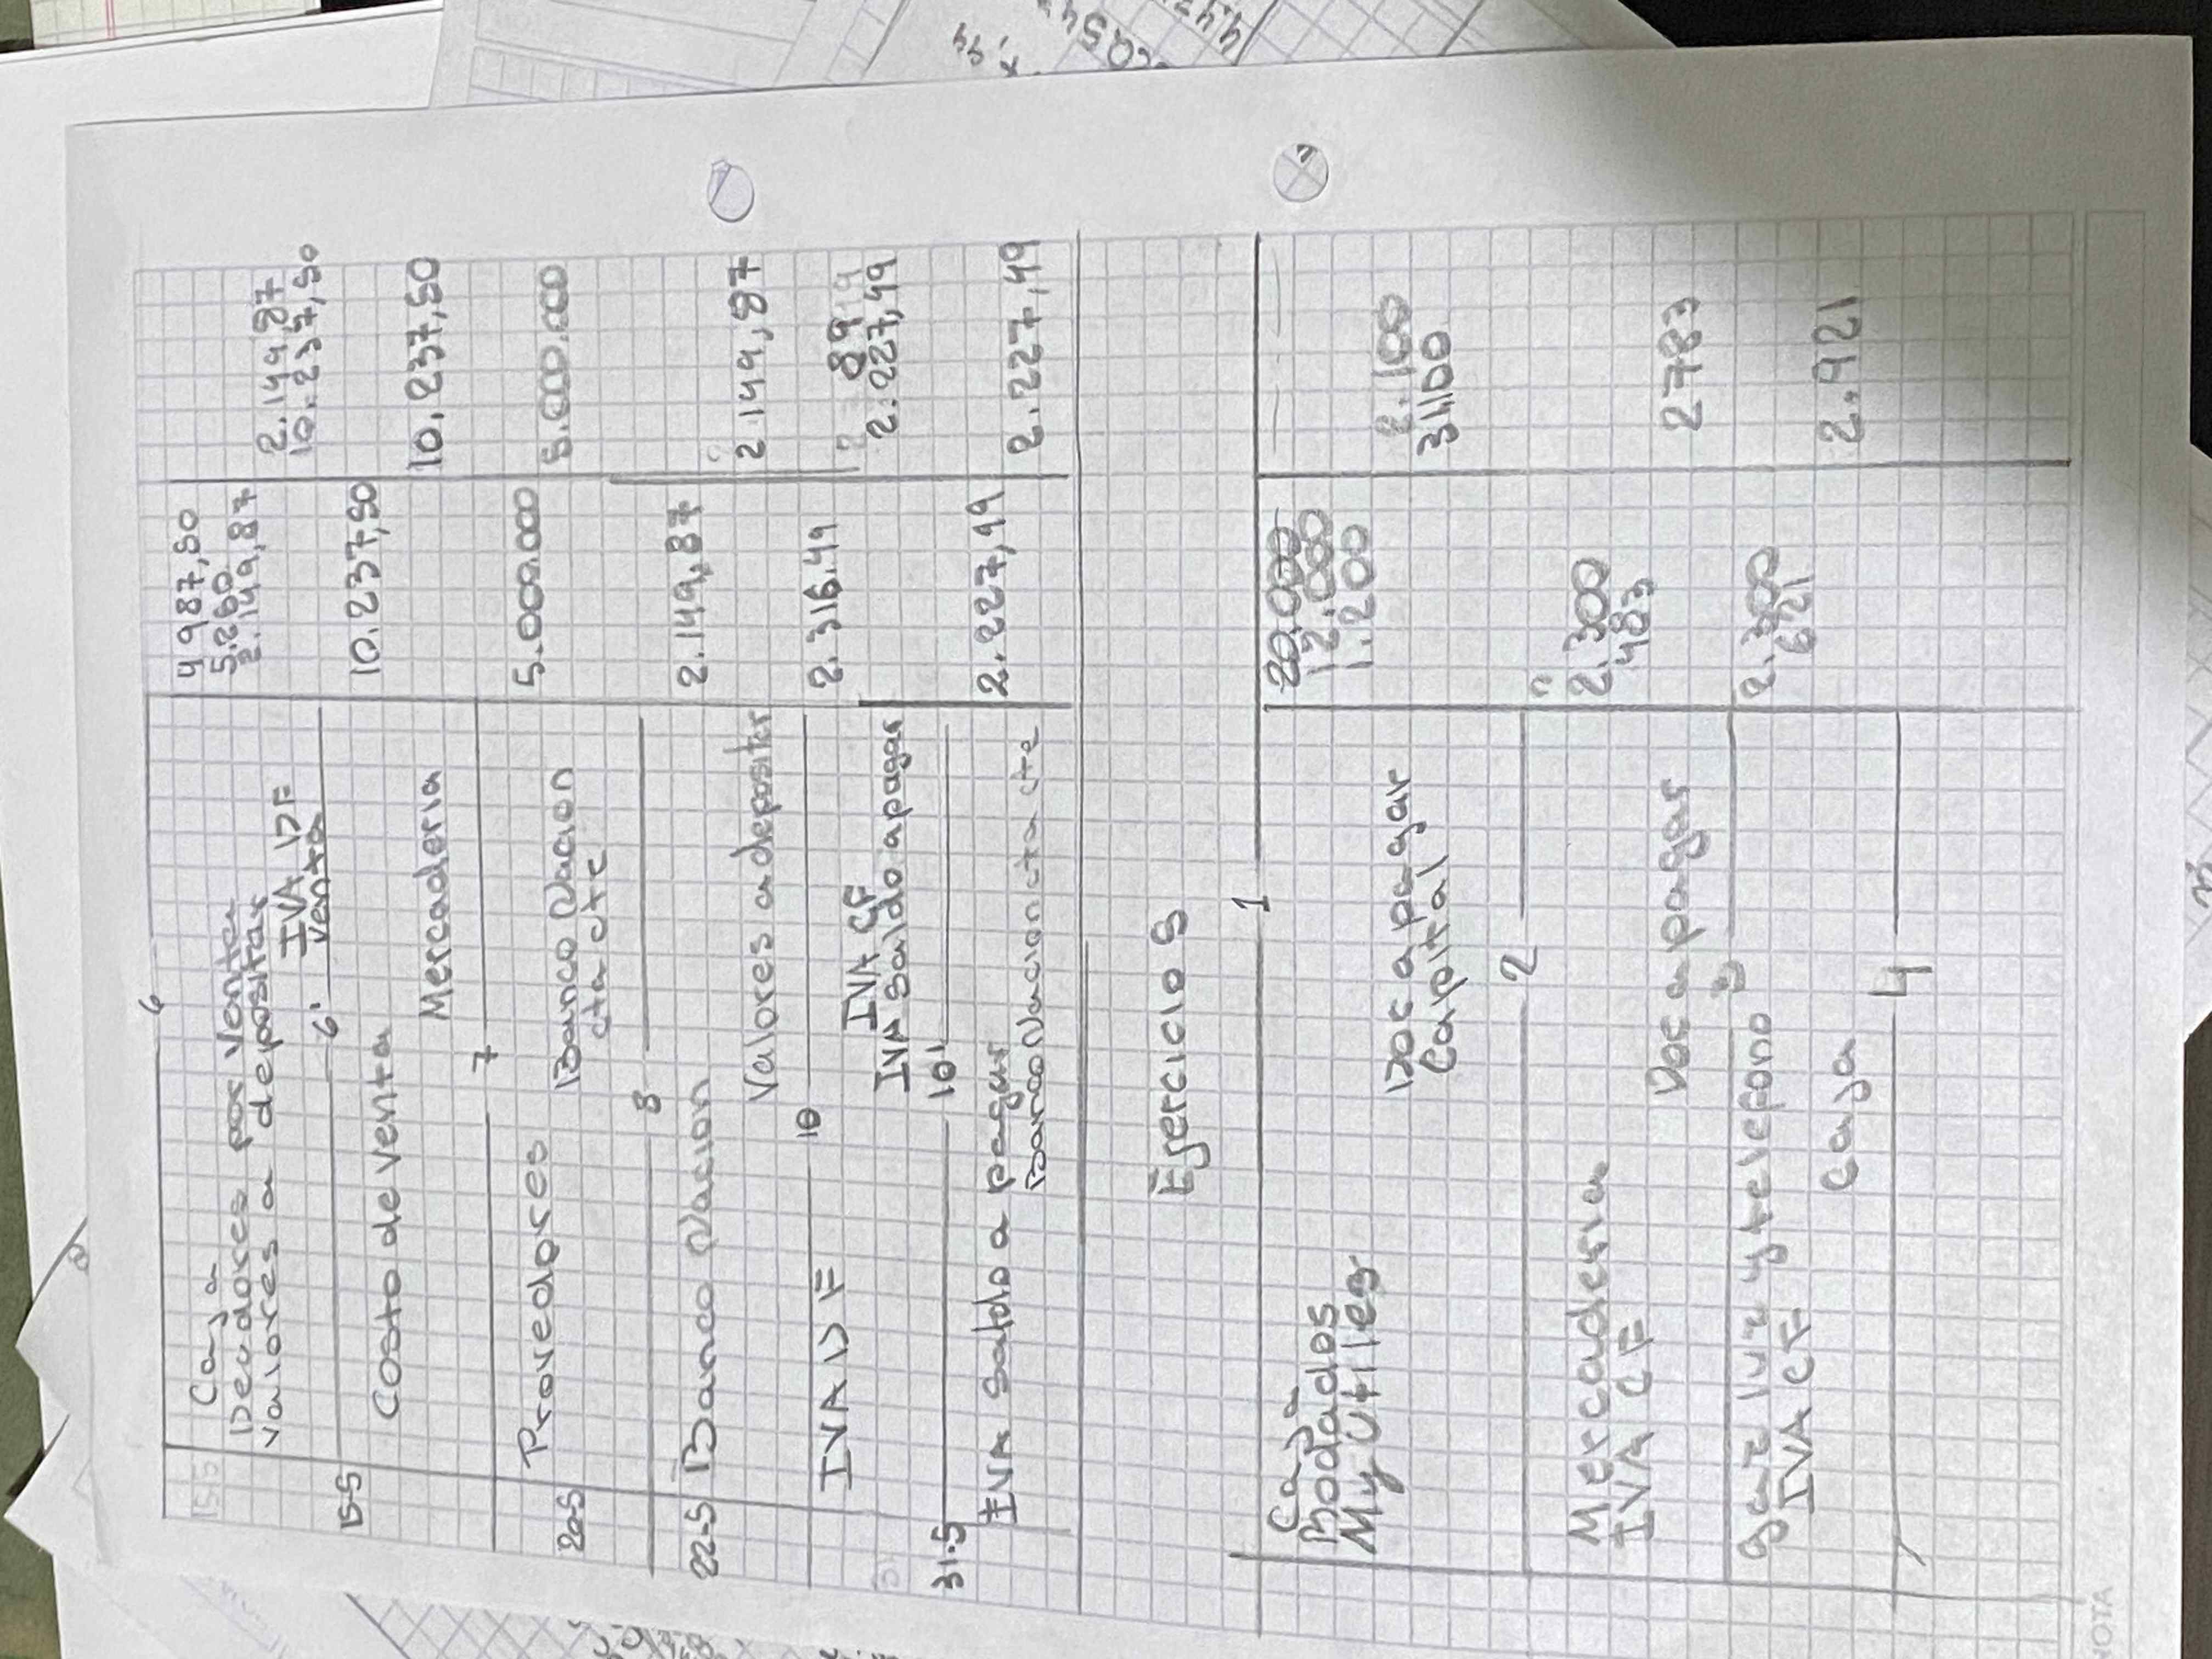 6
Caja 4 987,50
15-5 Deudores por Venta 5.260
Valores a depositar 2.149,87
IVA DF 2.149,87
Venta 10.237,50
6'
15-5 Costo de venta 10.237,50
Mercaderia 10.237,50
7
20-5 Provedores 5.000.000
Banco Nacion 5.000.000
cta cte
8
22-5 Banco Nacion 2.149,87
Valores a depositar 2.149,87
10
IVA DF 2.316.49
IVA CF 89
IVA Saldo a pagar 2.227,49
10'
31.5
IVA Saldo a pagar 2.227,49
Banco Nacion cta cte 2.227,49
Ejercicio 8
1
Caja 20.000
Rodados 12.000
My Utiles 1.200
Doc a pagar 2.100
Capital 31.100
2
Mercaderia 2.300
IVA CF 483
Doc a pagar 2783
3
gas luz y telefono 2.300
IVA CF 621
Caja 2.921
4
NOTA